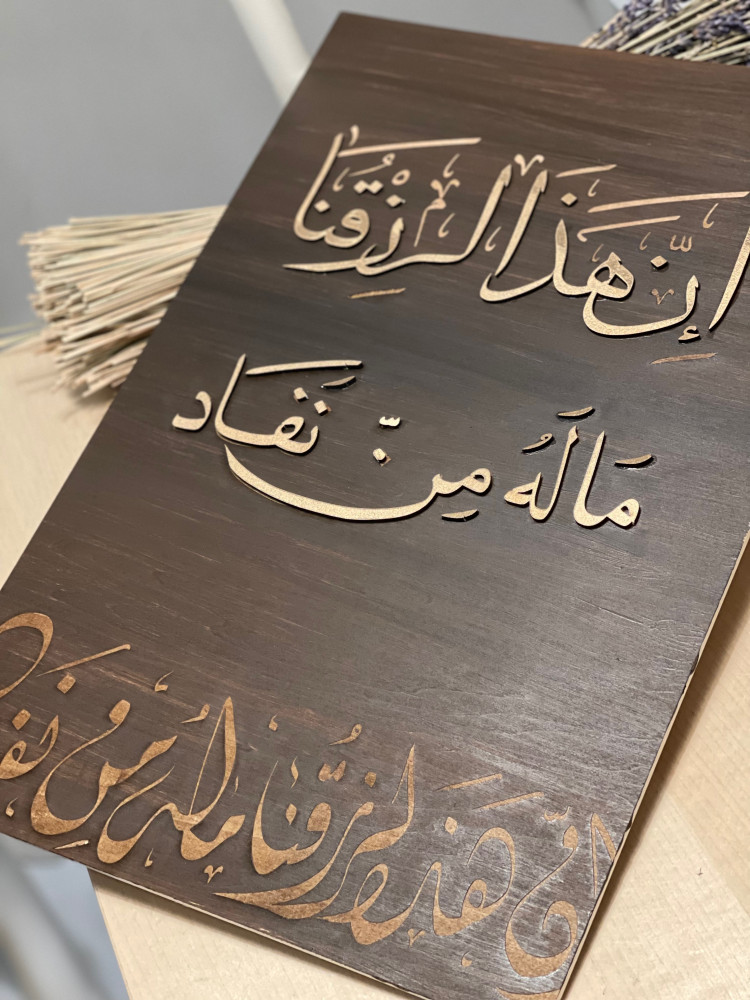 إِنّ هَذَا لَرِزْقُنَا
مَالَهُ مِنّ نَفَاد
إنّ هَذَا لرزقُنا مالهُ مِن نفاد